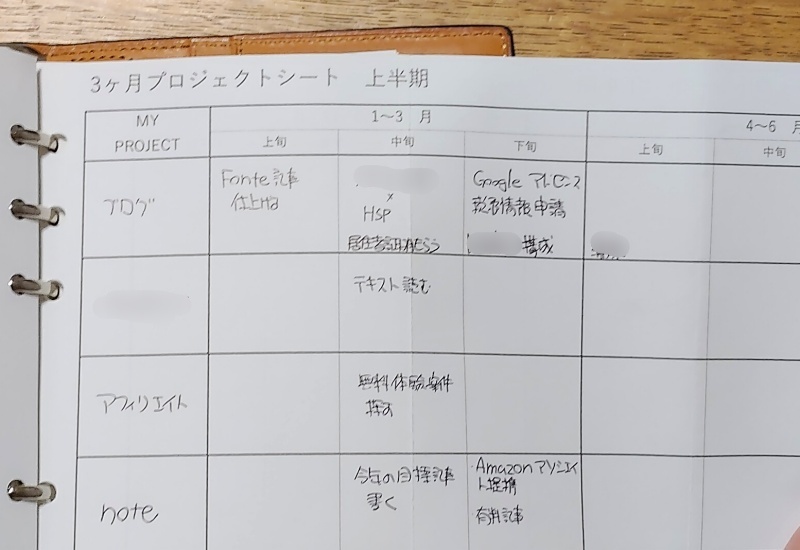 3ヶ月プロジェクトシート 上半期
MY PROJECT
1～3 月
4～6 月
上旬
中旬
下旬
上旬
中旬
ブログ
Fonte記事
仕上げる
×
HSP
居住者証明もらう
Google アドセンス
税務情報申請
構成
テキスト読む
アフィリエイト
無料体験案件
探す
note
今年の目標記事
書く
Amazonアソシエイ
ト提携
有料記事